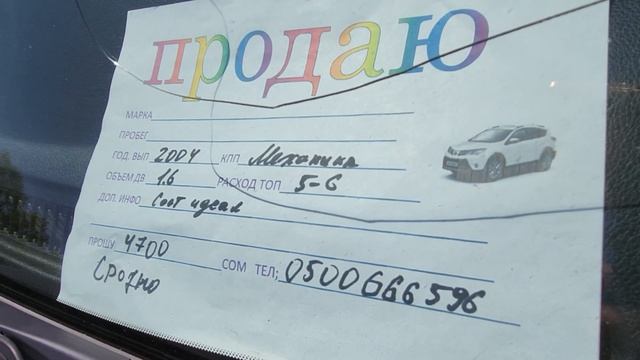 продаю
МАРКА
ПРОБЕГ
ГОД. ВЫП 2004 КПП Механика
ОБЪЕМ ДВ 1.6 РАСХОД ТОП 5-6
ДОП. ИНФО Сост идеал
ПРОШУ 4700 СОМ ТЕЛ; 0500666596
Срочно